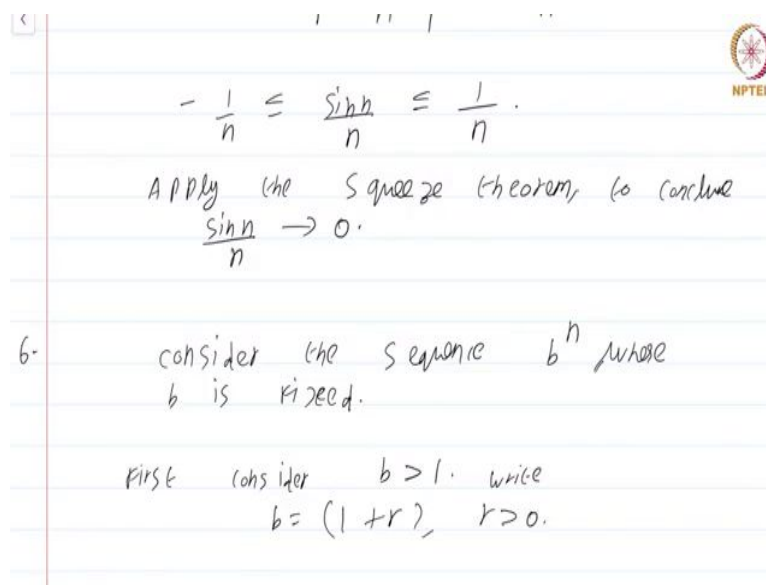 NPTEL
- 1/n ≤ sin n/n ≤ 1/n .
Apply the Squeeze theorem, to conclude
sin n/n → 0.
6. consider the sequence b^n where
b is fixed.
First consider b > 1. write
b = (1 + r), r > 0.